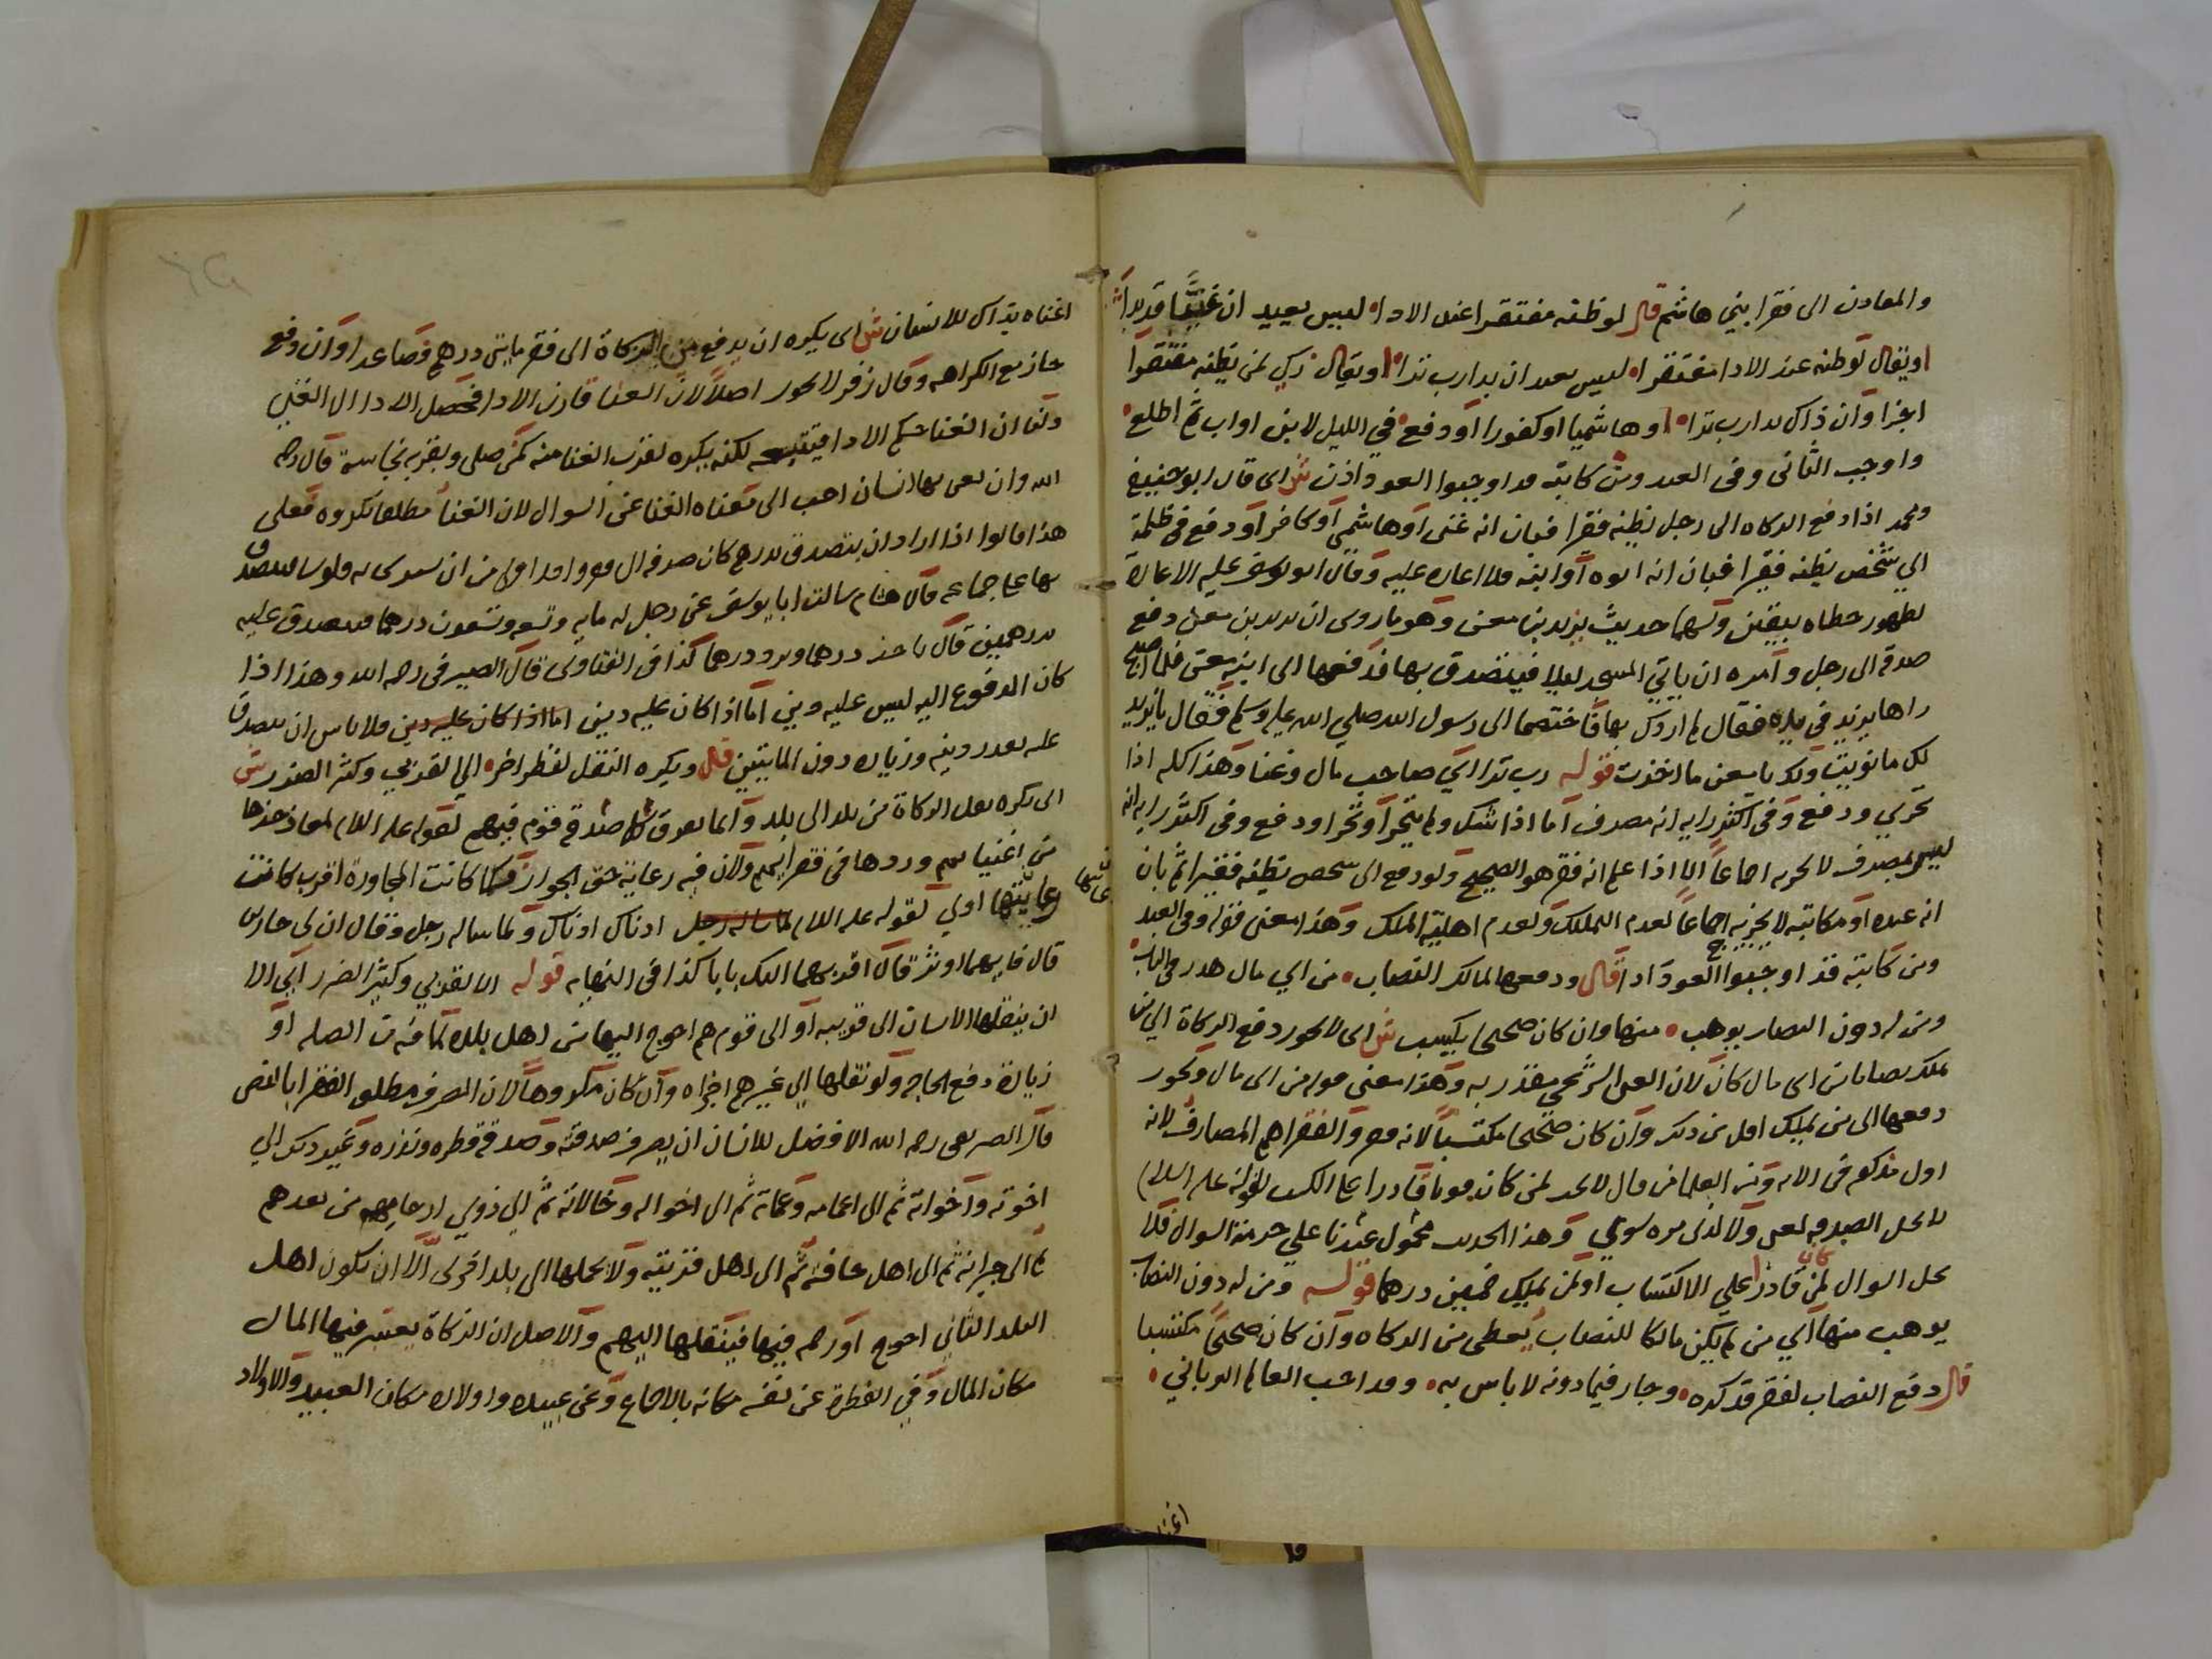 والمعادن الى فقرا بني هاشم قال لو ظنه مفتقرا عند الادا ليس بعيد ان غنيا قد بدا
او يقال لو ظنه عند الادا مفتقرا ليس بعيد ان بدا رب ثرا او يقال زكى لمن يظنه مفتقرا
اجزا وان ذاك بدا رب ثرا او هاشميا او كفورا او دفع في الليل لابن او اب ثم اطلع
واوجب الثانى وفى العبد ومن كاتبه قد اوجبوا العود اذن ش اى قال ابو حنيفة
ومحمد اذا دفع الزكاه الى رجل يظنه فقيرا فبان انه غنى او هاشمي او كافر او دفع فى ظلمة
الى شخص يظنه فقيرا فبان انه ابوه او ابنه فلا اعاده عليه وقال ابو يوسف عليه الاعادة
لظهور خطاه بيقين ولهما حديث يزيد بن معن وهو ما روى ان يزيد بن معن دفع
صدقة الى رجل وامره ان ياتي المسجد ليلا فيتصدق بها فدفعها الى ابنه معن فلما اصبح
راها يزيد في يده فقال لم اردك بها فاختصما الى رسول الله صلى الله عليه وسلم فقال يا يزيد
لك ما نويت ولك يا معن ما اخذت قوله رب ثرا اي صاحب مال وغنا وهذا كله اذا
تحري ودفع وفى اكثر رايه انه مصرف اما اذا شك ولم يتحر او تحرا ودفع وفى اكثر رايه انه
ليس بمصرف لا يجزيه اجماعا الا اذا علم انه فقير هو الصحيح ولو دفع الى شخص يظنه فقيرا ثم بان
انه عبده او مكاتبه لا يجزيه اجماعا لعدم التملك ولعدم اهلية الملك وهذا معنى قوله وفى العبد
ومن كاتبه قد اوجبوا العود اذا قال ودفعها لمالك النصاب من اي مال هدر فى الباب
ومن له دون النصاب يوهب منها وان كان صحيحا يكسب ش اى لا يجوز دفع الزكاة الى من
ملك نصابا من اى مال كان لان الغنى الشرعي مقدر به وهذا معنى قوله من اى مال ويجوز
دفعها الى من يملك اقل من ذلك وان كان صحيحا مكتسبا لانه فقير والفقرا هم المصارف لانه
اول مذكور فى الايه ومن العلما من قال لا يحل لمن كان قويا قادرا على الكسب لقوله عليه السلام
لا تحل الصدقه لغنى ولا لذى مره سوي وهذا الحديث محمول عندنا على حرمة السوال فلا
يحل السوال لمن كان قادرا على الاكتساب او لمن يملك خمسين درهما قوله ومن له دون النصاب
يوهب منها اي من لم يكن مالكا للنصاب يعطى من الزكاه وان كان صحيحا مكتسبا
قال دفع النصاب لفقير قد كره وجاز فيما دونه لا باس به وقد احب العالم الرباني
اغنا
اغناه بذاك للانسان ش اى يكره ان يدفع من الزكاة الى فقير مايتى درهم فصاعدا وان دفع
جاز مع الكراهه وقال زفر لا يجوز اصلا لان الغنا قارن الادا فحصل الادا الى الغني
ولنا ان الغنا حكم الادا فيتعقبه لكنه يكره لقرب الغنا منه كمن صلى وبقربه نجاسة قال رحمه
الله وان يغنى بها انسان احب الى معناه الغنا عن السوال لان الغنا مطلقا مكروه فعلى
هذا قالوا اذا اراد ان يتصدق بدرهم كان صدقه الى فقير واحد اولى من ان يشترى به فلوسا فيتصدق
بها على جماعه قال هشام سالت ابا يوسف عن رجل له مايه وتسعه وتسعون درهما فتصدق عليه
بدرهمين قال ياخذ درهما ويرد درهما كذا فى الفتاوى قال الصيرفى رحمه الله وهذا اذا
كان المدفوع اليه ليس عليه دين اما اذا كان عليه دين اما اذا كان عليه دين فلا باس ان يتصدق
عليه بقدر دينه وزياده دون المايتين قال ويكره النقل لقطر اخر الى لقربي وكثر الضرر ش
اى يكره نقل الزكاة من بلد الى بلد وانما تفرق صدقة قوم فيهم لقوله عليه السلام لمعاذ خذها
من اغنيايهم وردها فى فقرايهم ولان فيه رعاية حق الجوار فكلما كانت المجاورة اقرب كانت
رعايتها اولى لقوله عليه السلام لما ساله رجل ادناك ادناك ولما ساله رجل وقال ان لى جارين
قال فايهما اوثر قال اقربهما اليك بابا كذا فى النهايه قوله الا لقربي وكثير الضرر اي الا
ان ينقلها الانسان الى قريبه او الى قوم هم احوج اليها من اهل بلده لما فيه من الصله او
زيادة دفع الحاجه ولو نقلها الى غيرهم اجزاه وان كان مكروها لان المصرف مطلق الفقرا بالنص
قال الصيرفى رحمه الله الافضل للانسان ان يصرف صدقته وصدقة فطره ونذره وغير ذلك الى
اخوته واخواته ثم الى اعمامه وعماته ثم الى اخواله وخالاته ثم الى ذوي ارحامهم من بعدهم
ثم الى جيرانه ثم الى اهل حافته ثم الى اهل قريته ولا يحملها الى بلد اخرى الا ان تكون اهل
البلد الثاني احوج او رحم فيها فينقلها اليهم والاصل ان الزكاة يعتبر فيها المال
مكان المال وفي الفطرة عن نفسه مكانه بالاجماع وعن عبيده واولاده مكان العبيد والاولاد